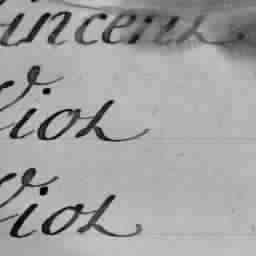 Vincent
Viot
Viot